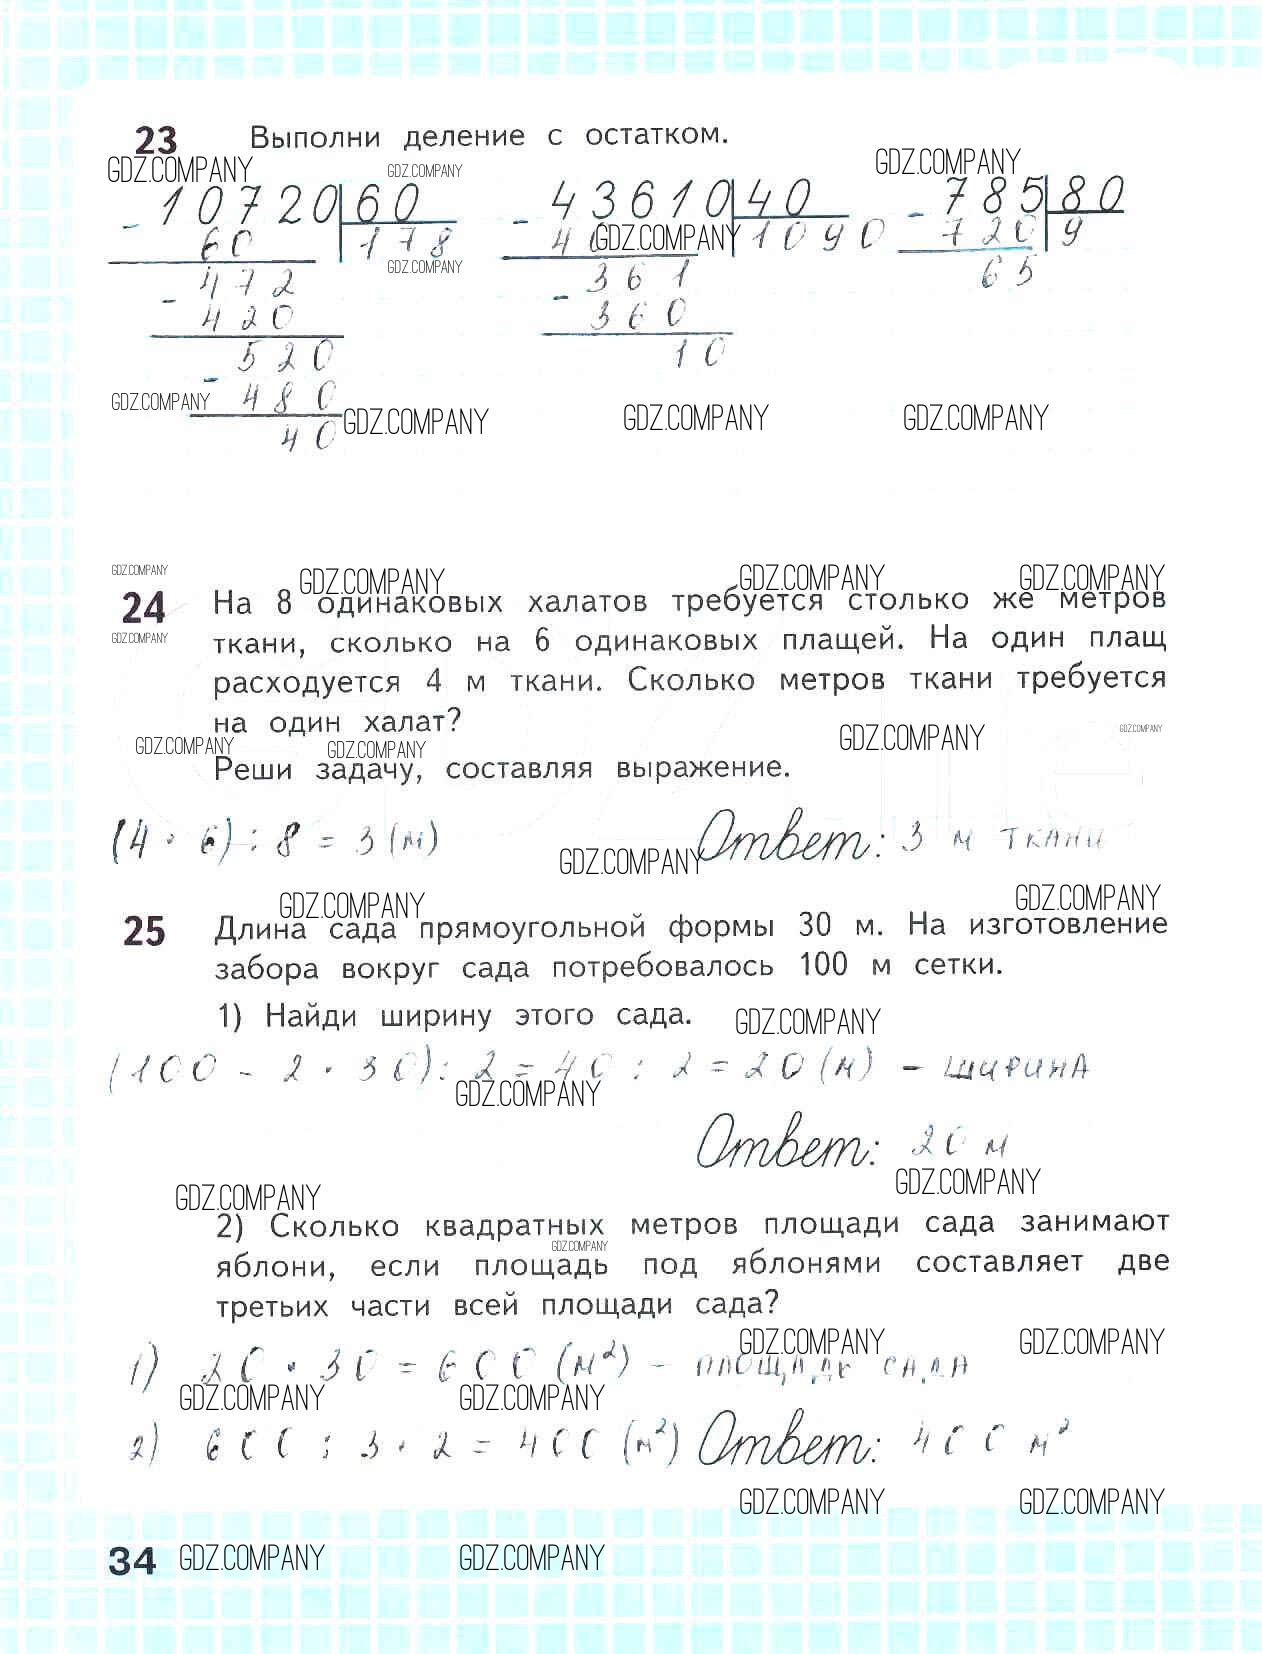 23 Выполни деление с остатком.
GDZ.COMPANY GDZ.COMPANY GDZ.COMPANY
- 10720 60 - 43610 40 - 785 80
60 178 40 GDZ.COMPANY 1090 720 9
GDZ.COMPANY
472 361 65
- 420 - 360
520 10
- 480
GDZ.COMPANY GDZ.COMPANY GDZ.COMPANY GDZ.COMPANY
40
GDZ.COMPANY GDZ.COMPANY GDZ.COMPANY GDZ.COMPANY
24 На 8 одинаковых халатов требуется столько же метров
GDZ.COMPANY
ткани, сколько на 6 одинаковых плащей. На один плащ
расходуется 4 м ткани. Сколько метров ткани требуется
на один халат?
GDZ.COMPANY GDZ.COMPANY GDZ.COMPANY GDZ.COMPANY
Реши задачу, составляя выражение.
(4 · 6) : 8 = 3 (м) Ответ: 3 м ткани
GDZ.COMPANY
GDZ.COMPANY GDZ.COMPANY
25 Длина сада прямоугольной формы 30 м. На изготовление
забора вокруг сада потребовалось 100 м сетки.
1) Найди ширину этого сада. GDZ.COMPANY
(100 - 2 · 30) : 2 = 40 : 2 = 20 (м) - ширина
GDZ.COMPANY
Ответ: 20 м
GDZ.COMPANY GDZ.COMPANY
2) Сколько квадратных метров площади сада занимают
GDZ.COMPANY
яблони, если площадь под яблонями составляет две
третьих части всей площади сада?
GDZ.COMPANY GDZ.COMPANY
1) 20 · 30 = 600 (м²) - площадь сада
GDZ.COMPANY GDZ.COMPANY
2) 600 : 3 · 2 = 400 (м²) Ответ: 400 м²
GDZ.COMPANY GDZ.COMPANY
34 GDZ.COMPANY GDZ.COMPANY